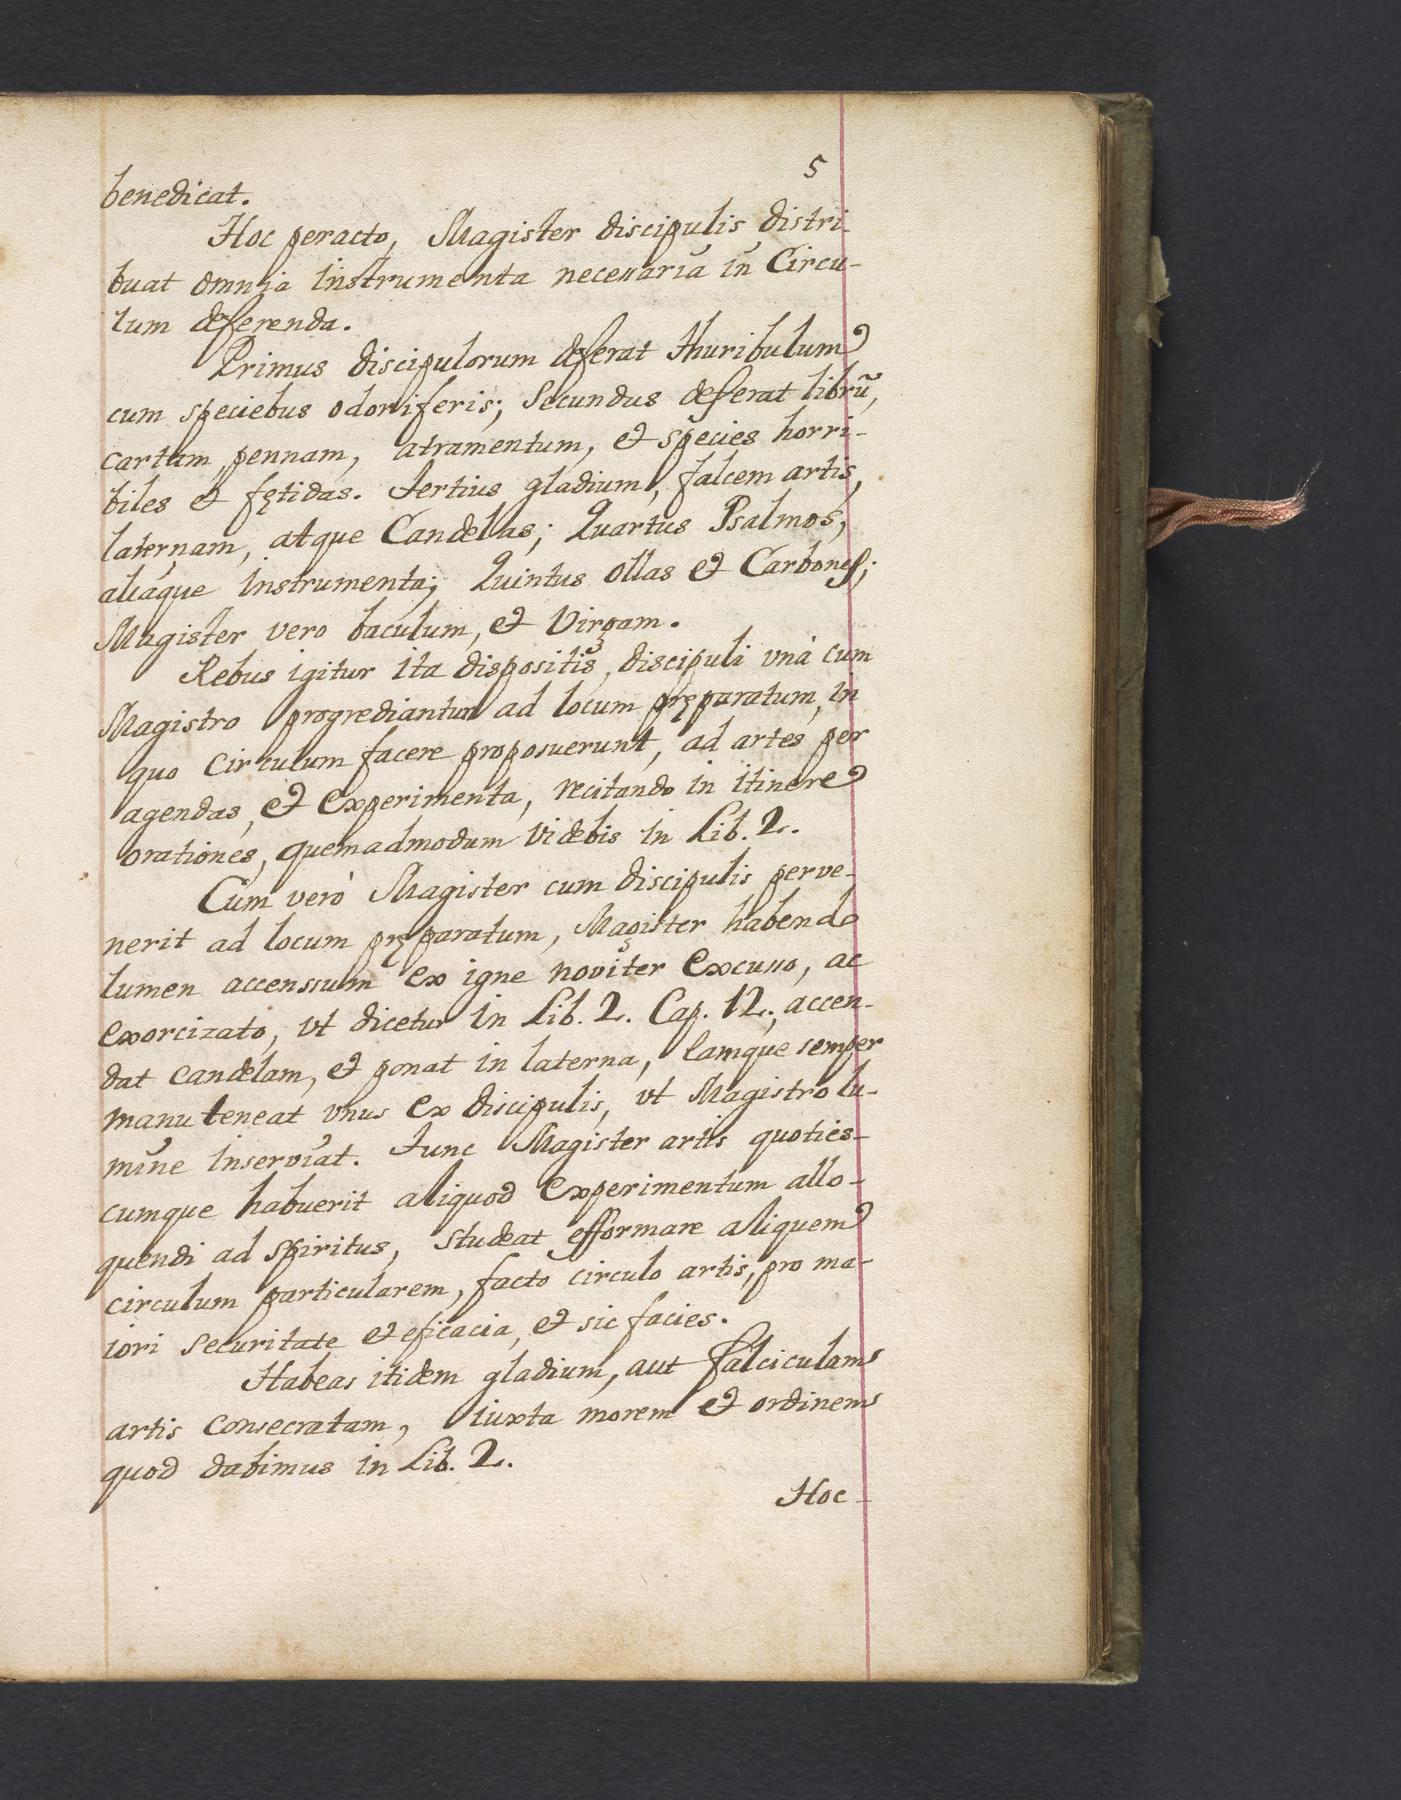 5
benedicat.
Hoc peracto, Magister discipulis distri-
buat omnia instrumenta necessaria in Circu-
lum deferenda.
Primus discipulorum deferat thuribulum
cum speciebus odoriferis; Secundus deferat librũ,
cartam, pennam, atramentum, et species horri-
biles et fętidas. Tertius gladium, falcem artis,
laternam, atque Candelas; Quartus Psalmos,
aliaque instrumenta; Quintus ollas et Carbones;
Magister vero baculum, et Virgam.
Rebus igitur ita dispositis, discipuli vnà cum
Magistro progrediantur ad locum pręparatum, in
quo Circulum facere proposuerunt, ad artes per
agendas, et Experimenta, recitando in itinere
orationes, quemadmodum Videbis in Lib. 2.
Cum verò Magister cum discipulis perve-
nerit ad locum pręparatum, Magister habendo
lumen accenssum ex igne noviter Excusso, ac
Exorcizato, vt dicetur in Lib. 2. Cap. 12., accen-
dat candelam, et ponat in laterna, Eamque semper
manu teneat vnus Ex discipulis, vt Magistro lu-
mine inserviat. Tunc Magister artis quoties-
cumque habuerit aliquod Experimentum allo-
quendi ad Spiritus, studeat efformare aliquem
circulum particularem, facto circulo artis, pro ma-
iori securitate et eficacia, et sic facies.
Habeas itidem gladium, aut falciculam
artis Consecratam, iuxta morem et ordinem
quod dabimus in Lib. 2.
Hoc